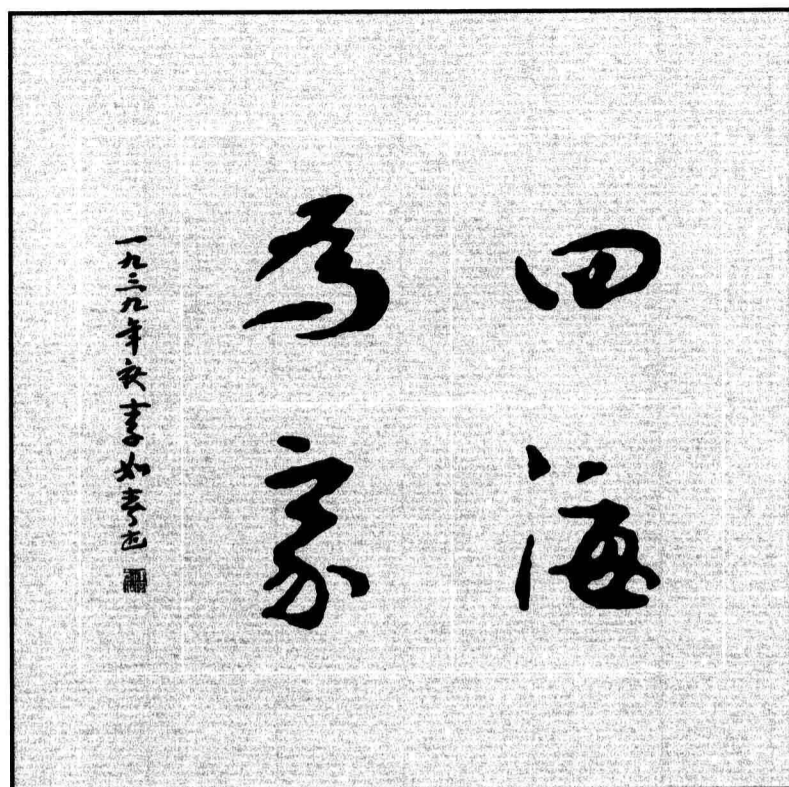 四海
為家
一九三九年秋李如